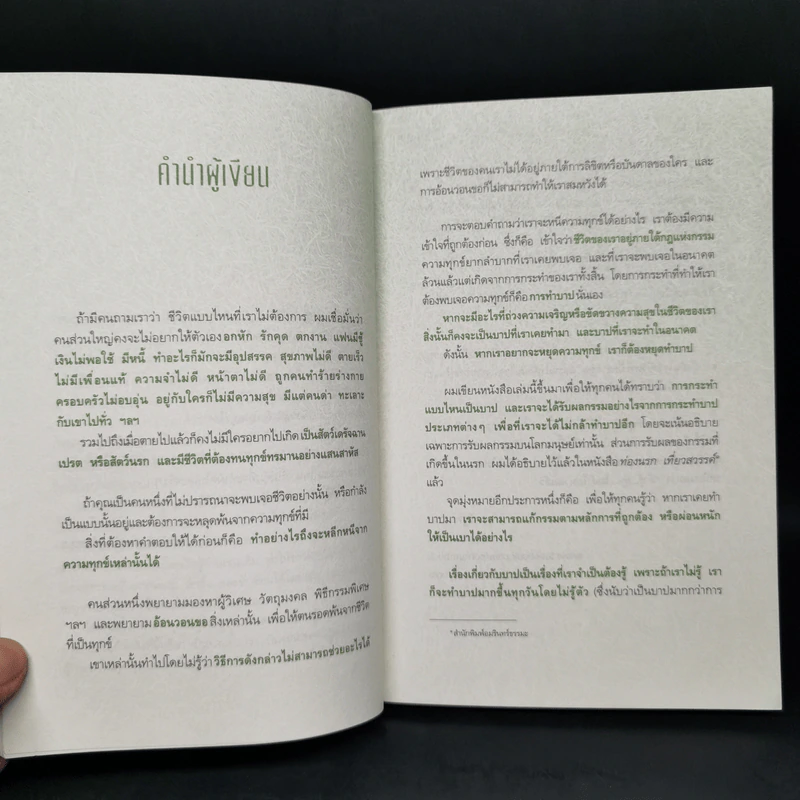 คำนำผู้เขียน
ถ้ามีคนถามเราว่า ชีวิตแบบไหนที่เราไม่ต้องการ ผมเชื่อมั่นว่า
คนส่วนใหญ่คงจะไม่อยากให้ตัวเองอกหัก รักคุด ตกงาน แฟนมีชู้
เงินไม่พอใช้ มีหนี้ ทำอะไรก็มักจะมีอุปสรรค สุขภาพไม่ดี ตายเร็ว
ไม่มีเพื่อนแท้ ความจำไม่ดี หน้าตาไม่ดี ถูกคนทำร้ายร่างกาย
ครอบครัวไม่อบอุ่น อยู่กับใครก็ไม่มีความสุข มีแต่คนด่า ทะเลาะ
กับเขาไปทั่ว ฯลฯ
รวมไปถึงเมื่อตายไปแล้วก็คงไม่มีใครอยากไปเกิดเป็นสัตว์เดรัจฉาน
เปรต หรือสัตว์นรก และมีชีวิตที่ต้องทนทุกข์ทรมานอย่างแสนสาหัส
ถ้าคุณเป็นคนหนึ่งที่ไม่ปรารถนาจะพบเจอชีวิตอย่างนั้น หรือกำลัง
เป็นแบบนั้นอยู่และต้องการจะหลุดพ้นจากความทุกข์ที่มี
สิ่งที่ต้องหาคำตอบให้ได้ก่อนก็คือ ทำอย่างไรถึงจะหลีกหนีจาก
ความทุกข์เหล่านั้นได้
คนส่วนหนึ่งพยายามมองหาผู้วิเศษ วัตถุมงคล พิธีกรรมพิเศษ
ฯลฯ และพยายามอ้อนวอนขอสิ่งเหล่านั้น เพื่อให้ตนรอดพ้นจากชีวิต
ที่เป็นทุกข์
เขาเหล่านั้นทำไปโดยไม่รู้ว่าวิธีการดังกล่าวไม่สามารถช่วยอะไรได้
เพราะชีวิตของคนเราไม่ได้อยู่ภายใต้การลิขิตหรือบันดาลของใคร และ
การอ้อนวอนขอก็ไม่สามารถทำให้เราสมหวังได้
การจะตอบคำถามว่าเราจะหนีความทุกข์ได้อย่างไร เราต้องมีความ
เข้าใจที่ถูกต้องก่อน ซึ่งก็คือ เข้าใจว่าชีวิตของเราอยู่ภายใต้กฎแห่งกรรม
ความทุกข์ยากลำบากที่เราเคยพบเจอ และที่เราจะพบเจอในอนาคต
ล้วนแล้วแต่เกิดจากการกระทำของเราทั้งสิ้น โดยการกระทำที่ทำให้เรา
ต้องพบเจอความทุกข์ก็คือการทำบาปนั่นเอง
หากจะมีอะไรที่ถ่วงความเจริญหรือขัดขวางความสุขในชีวิตของเรา
สิ่งนั้นก็คงจะเป็นบาปที่เราเคยทำมา และบาปที่เราจะทำในอนาคต
ดังนั้น หากเราอยากจะหยุดความทุกข์ เราก็ต้องหยุดทำบาป
ผมเขียนหนังสือเล่มนี้ขึ้นมาเพื่อให้ทุกคนได้ทราบว่า การกระทำ
แบบไหนเป็นบาป และเราจะได้รับผลกรรมอย่างไรจากการกระทำบาป
ประเภทต่างๆ เพื่อที่เราจะได้ไม่กล้าทำบาปอีก โดยจะเน้นอธิบาย
เฉพาะการรับผลกรรมบนโลกมนุษย์เท่านั้น ส่วนการรับผลของกรรมที่
เกิดขึ้นในนรก ผมได้อธิบายไว้แล้วในหนังสือ ท่องนรก เที่ยวสวรรค์*
แล้ว
จุดมุ่งหมายอีกประการหนึ่งก็คือ เพื่อให้ทุกคนรู้ว่า หากเราเคยทำ
บาปมา เราจะสามารถแก้กรรมตามหลักการที่ถูกต้อง หรือผ่อนหนัก
ให้เป็นเบาได้อย่างไร
เรื่องเกี่ยวกับบาปเป็นเรื่องที่เราจำเป็นต้องรู้ เพราะถ้าเราไม่รู้ เรา
ก็จะทำบาปมากขึ้นทุกวันโดยไม่รู้ตัว (ซึ่งนับว่าเป็นบาปมากกว่าการ
*สำนักพิมพ์อมรินทร์ธรรมะ